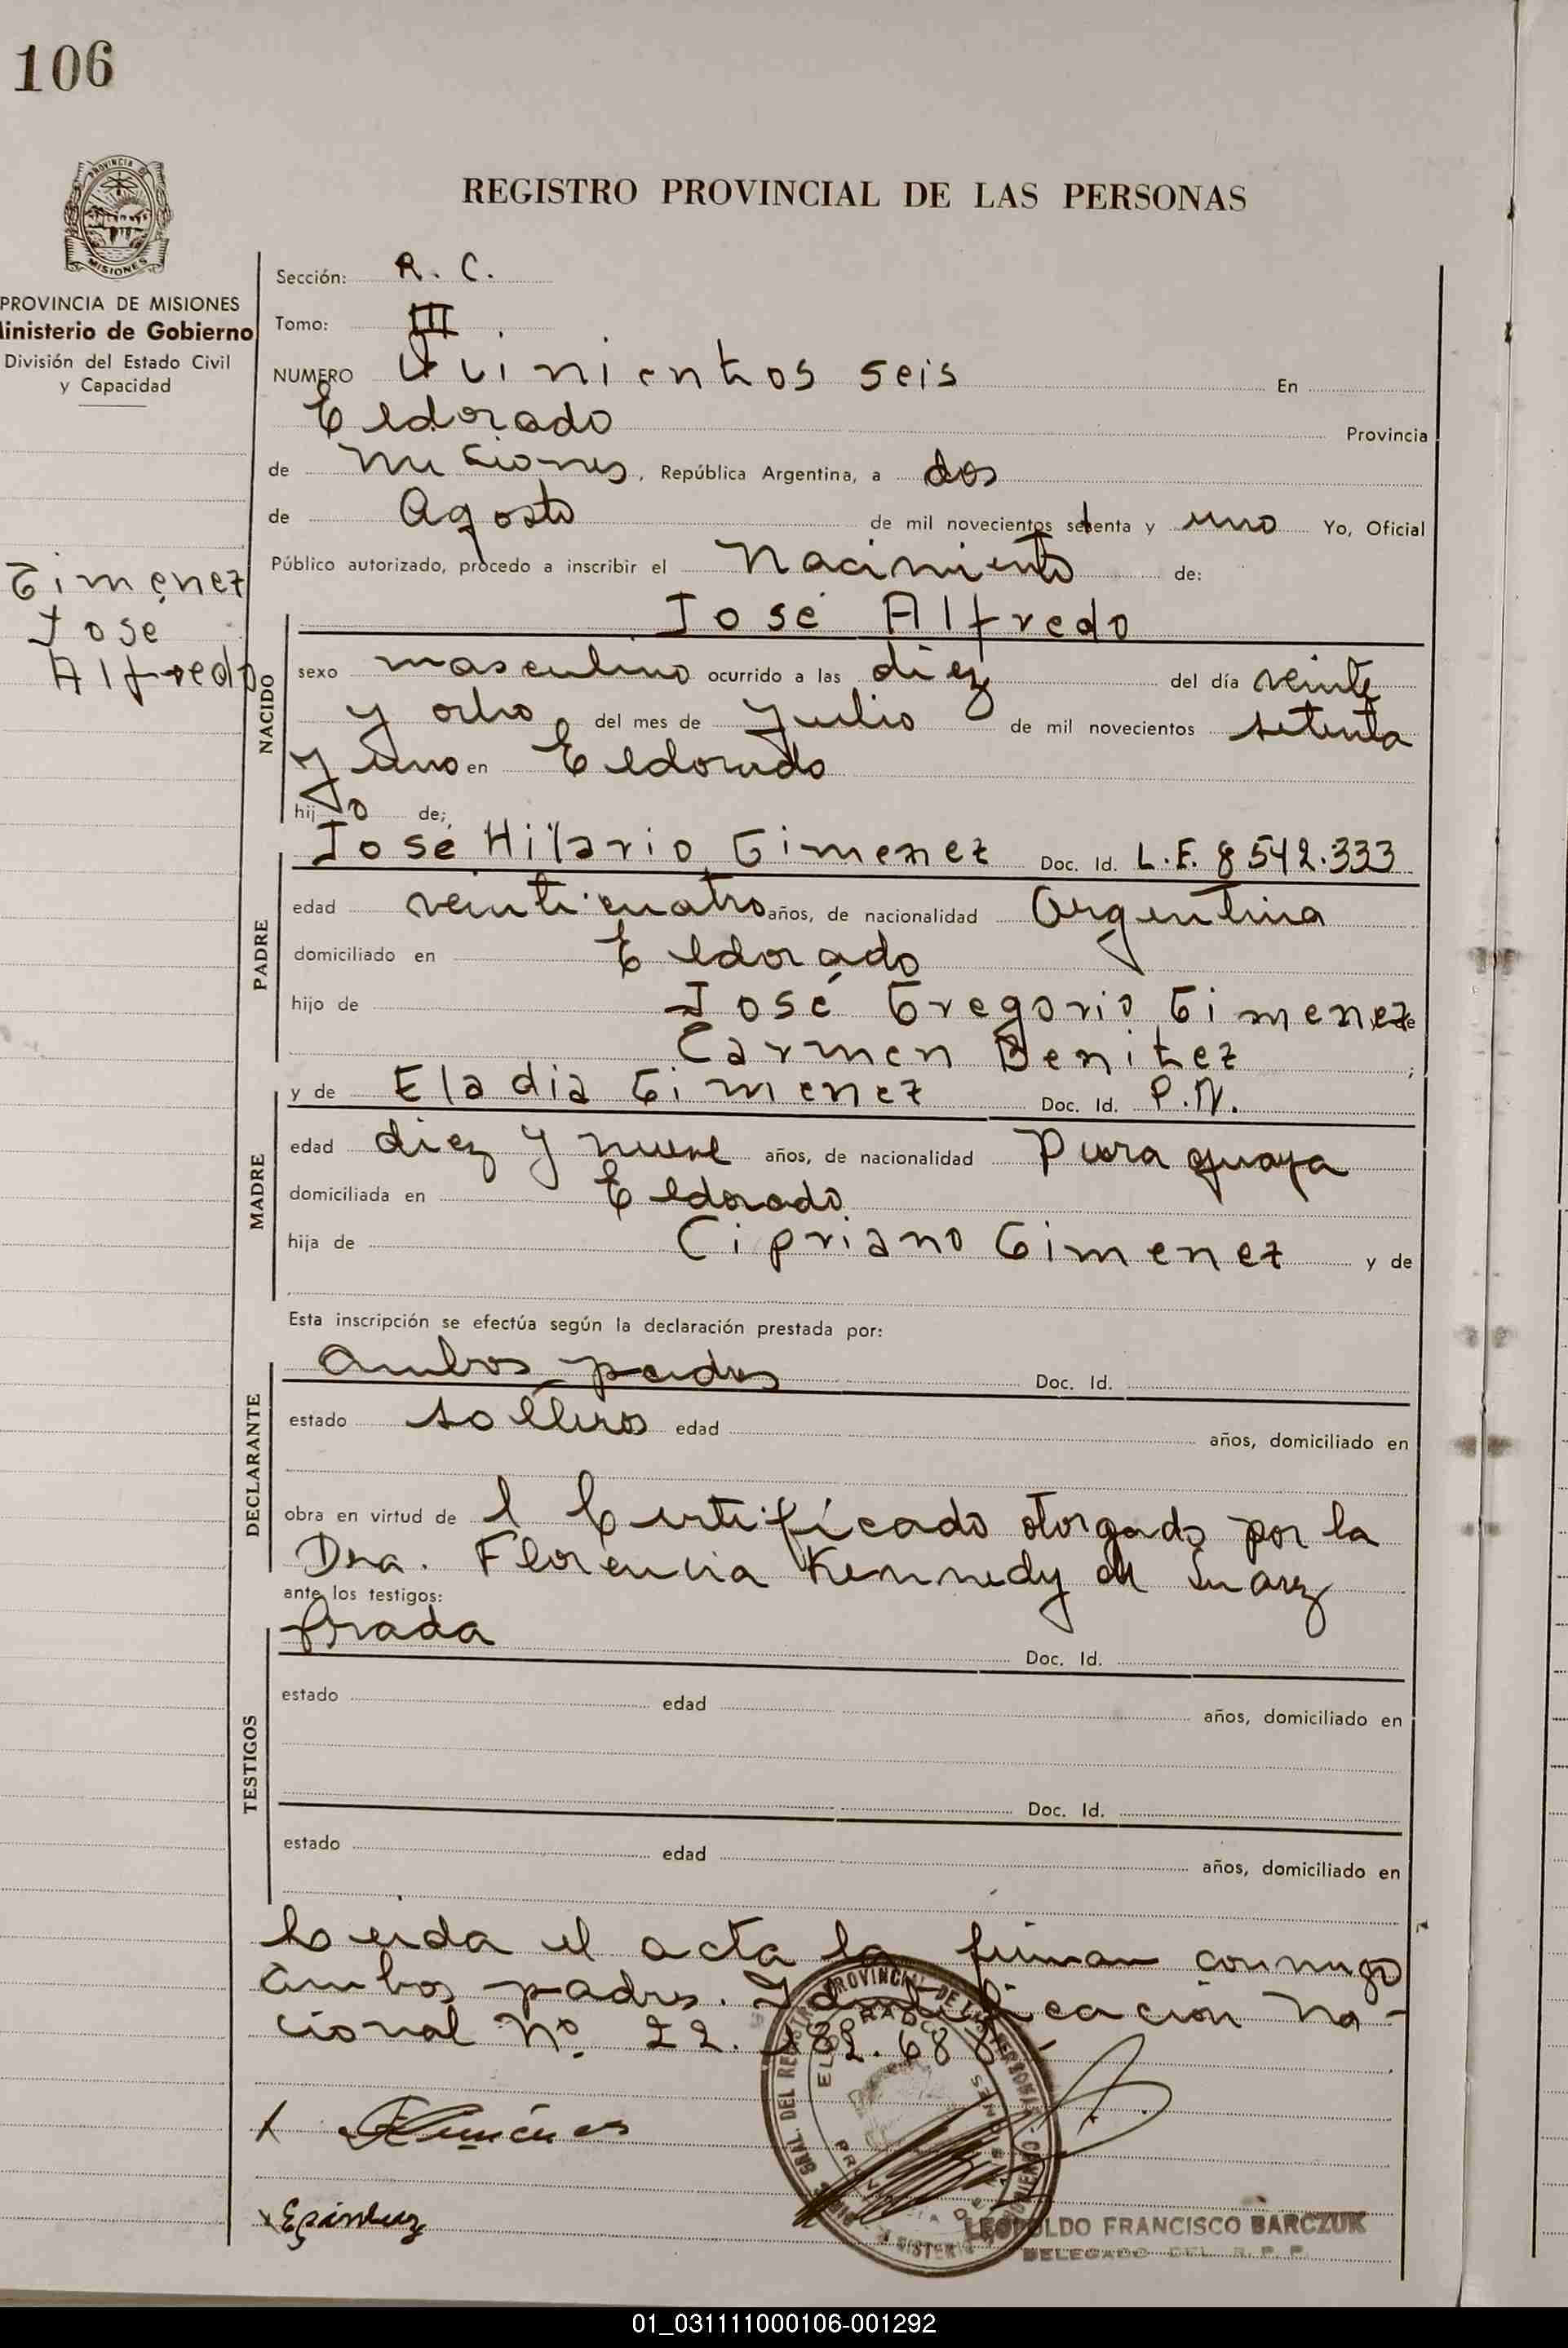 106
PROVINCIA DE
MISIONES
PROVINCIA DE MISIONES
Ministerio de Gobierno
División del Estado Civil
y Capacidad
Gimenez
Jose
Alfredo
REGISTRO PROVINCIAL DE LAS PERSONAS
Sección: R. C.
Tomo: III
NUMERO Quinientos seis En
Eldorado Provincia
de Misiones, República Argentina, a dos
de Agosto de mil novecientos setenta y uno Yo, Oficial
Público autorizado, procedo a inscribir el Nacimiento de:
José Alfredo
NACIDO
sexo masculino ocurrido a las diez del día veinte
y ocho del mes de Julio de mil novecientos setenta
y uno en Eldorado
hijo de;
José Hilario Gimenez Doc. Id. L.E. 8542.333
PADRE
edad veinticuatro años, de nacionalidad Argentina
domiciliado en Eldorado
hijo de José Gregorio Gimenez de
Carmen Benitez ;
y de Eladia Gimenez Doc. Id. P.N.
MADRE
edad diez y nueve años, de nacionalidad Paraguaya
domiciliada en Eldorado
hija de Cipriano Gimenez y de
Esta inscripción se efectúa según la declaración prestada por:
Ambos padres Doc. Id.
DECLARANTE
estado solteros edad años, domiciliado en
obra en virtud de l Certificado otorgado por la
Dra. Florencia Kennedy de Suarez
ante los testigos:
Prada Doc. Id.
TESTIGOS
estado edad años, domiciliado en
Doc. Id.
estado edad años, domiciliado en
Leida el acta la firman conmigo
ambos padres. Identificación Na-
cional Nº 22.182.688
x Gimenez
x
LEOPOLDO FRANCISCO BARCZUK
DELEGADO DEL R. P. P.
01_031111000106-001292